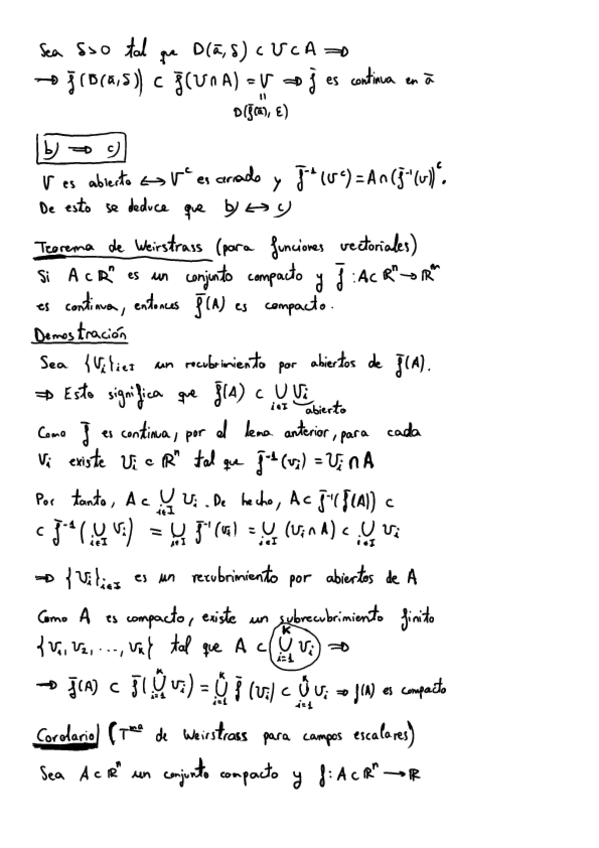 Sea δ>0 tal que D(ā,δ) ⊂ U ⊂ A ⇒
→ f̄(D(ā,δ)) ⊂ f̄(U∩A) = V ⇒ f̄ es continua en ā
=
D(f̄(ā), ε)
b) ⇒ c)
V es abierto ↔ Vᶜ es cerrado y f̄⁻¹(Vᶜ) = A∩(f̄⁻¹(V))ᶜ.
De esto se deduce que b) ↔ c)
Teorema de Weirstrass (para funciones vectoriales)
Si A⊂ℝⁿ es un conjunto compacto y f̄: A⊂ℝⁿ→ℝᵐ
es continua, entonces f̄(A) es compacto.
Demostración
Sea {Vi}i∈I un recubrimiento por abiertos de f̄(A).
⇒ Esto significa que f̄(A) ⊂ ⋃i∈I Vi
abierto
Como f̄ es continua, por el lema anterior, para cada
Vi existe Ui ⊂ ℝⁿ tal que f̄⁻¹(Vi) = Ui ∩ A
Por tanto, A ⊂ ⋃i∈I Ui. De hecho, A ⊂ f̄⁻¹(f̄(A)) ⊂
⊂ f̄⁻¹(⋃i∈I Vi) = ⋃i∈I f̄⁻¹(Vi) = ⋃i∈I (Ui∩A) ⊂ ⋃i∈I Ui
⇒ {Ui}i∈I es un recubrimiento por abiertos de A
Como A es compacto, existe un subrecubrimiento finito
{U1, U2, ..., Uk} tal que A ⊂ ⋃i=1^k Ui ⇒
→ f̄(A) ⊂ f̄(⋃i=1^k Ui) = ⋃i=1^k f̄(Ui) ⊂ ⋃i=1^k Vi ⇒ f(A) es compacto
Corolario (Tᵐᵃ de Weirstrass para campos escalares)
Sea A⊂ℝⁿ un conjunto compacto y f: A⊂ℝⁿ → ℝ